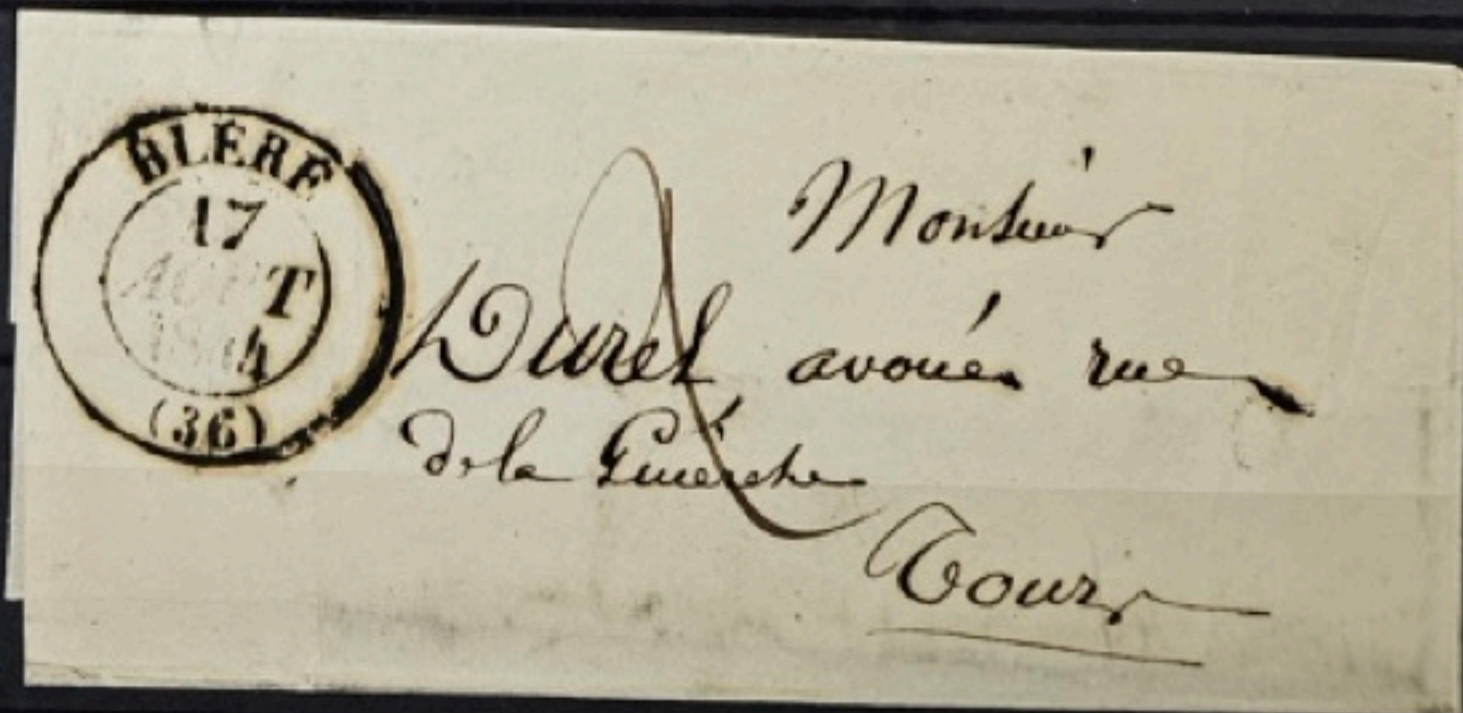 BLÉRÉ
17
AOUT
(36)
2
Monsieur
Duret avoué rue
de la Guerche
Tours